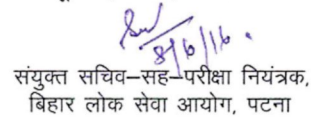 8/6/16.
संयुक्त सचिव–सह–परीक्षा नियंत्रक,
बिहार लोक सेवा आयोग, पटना